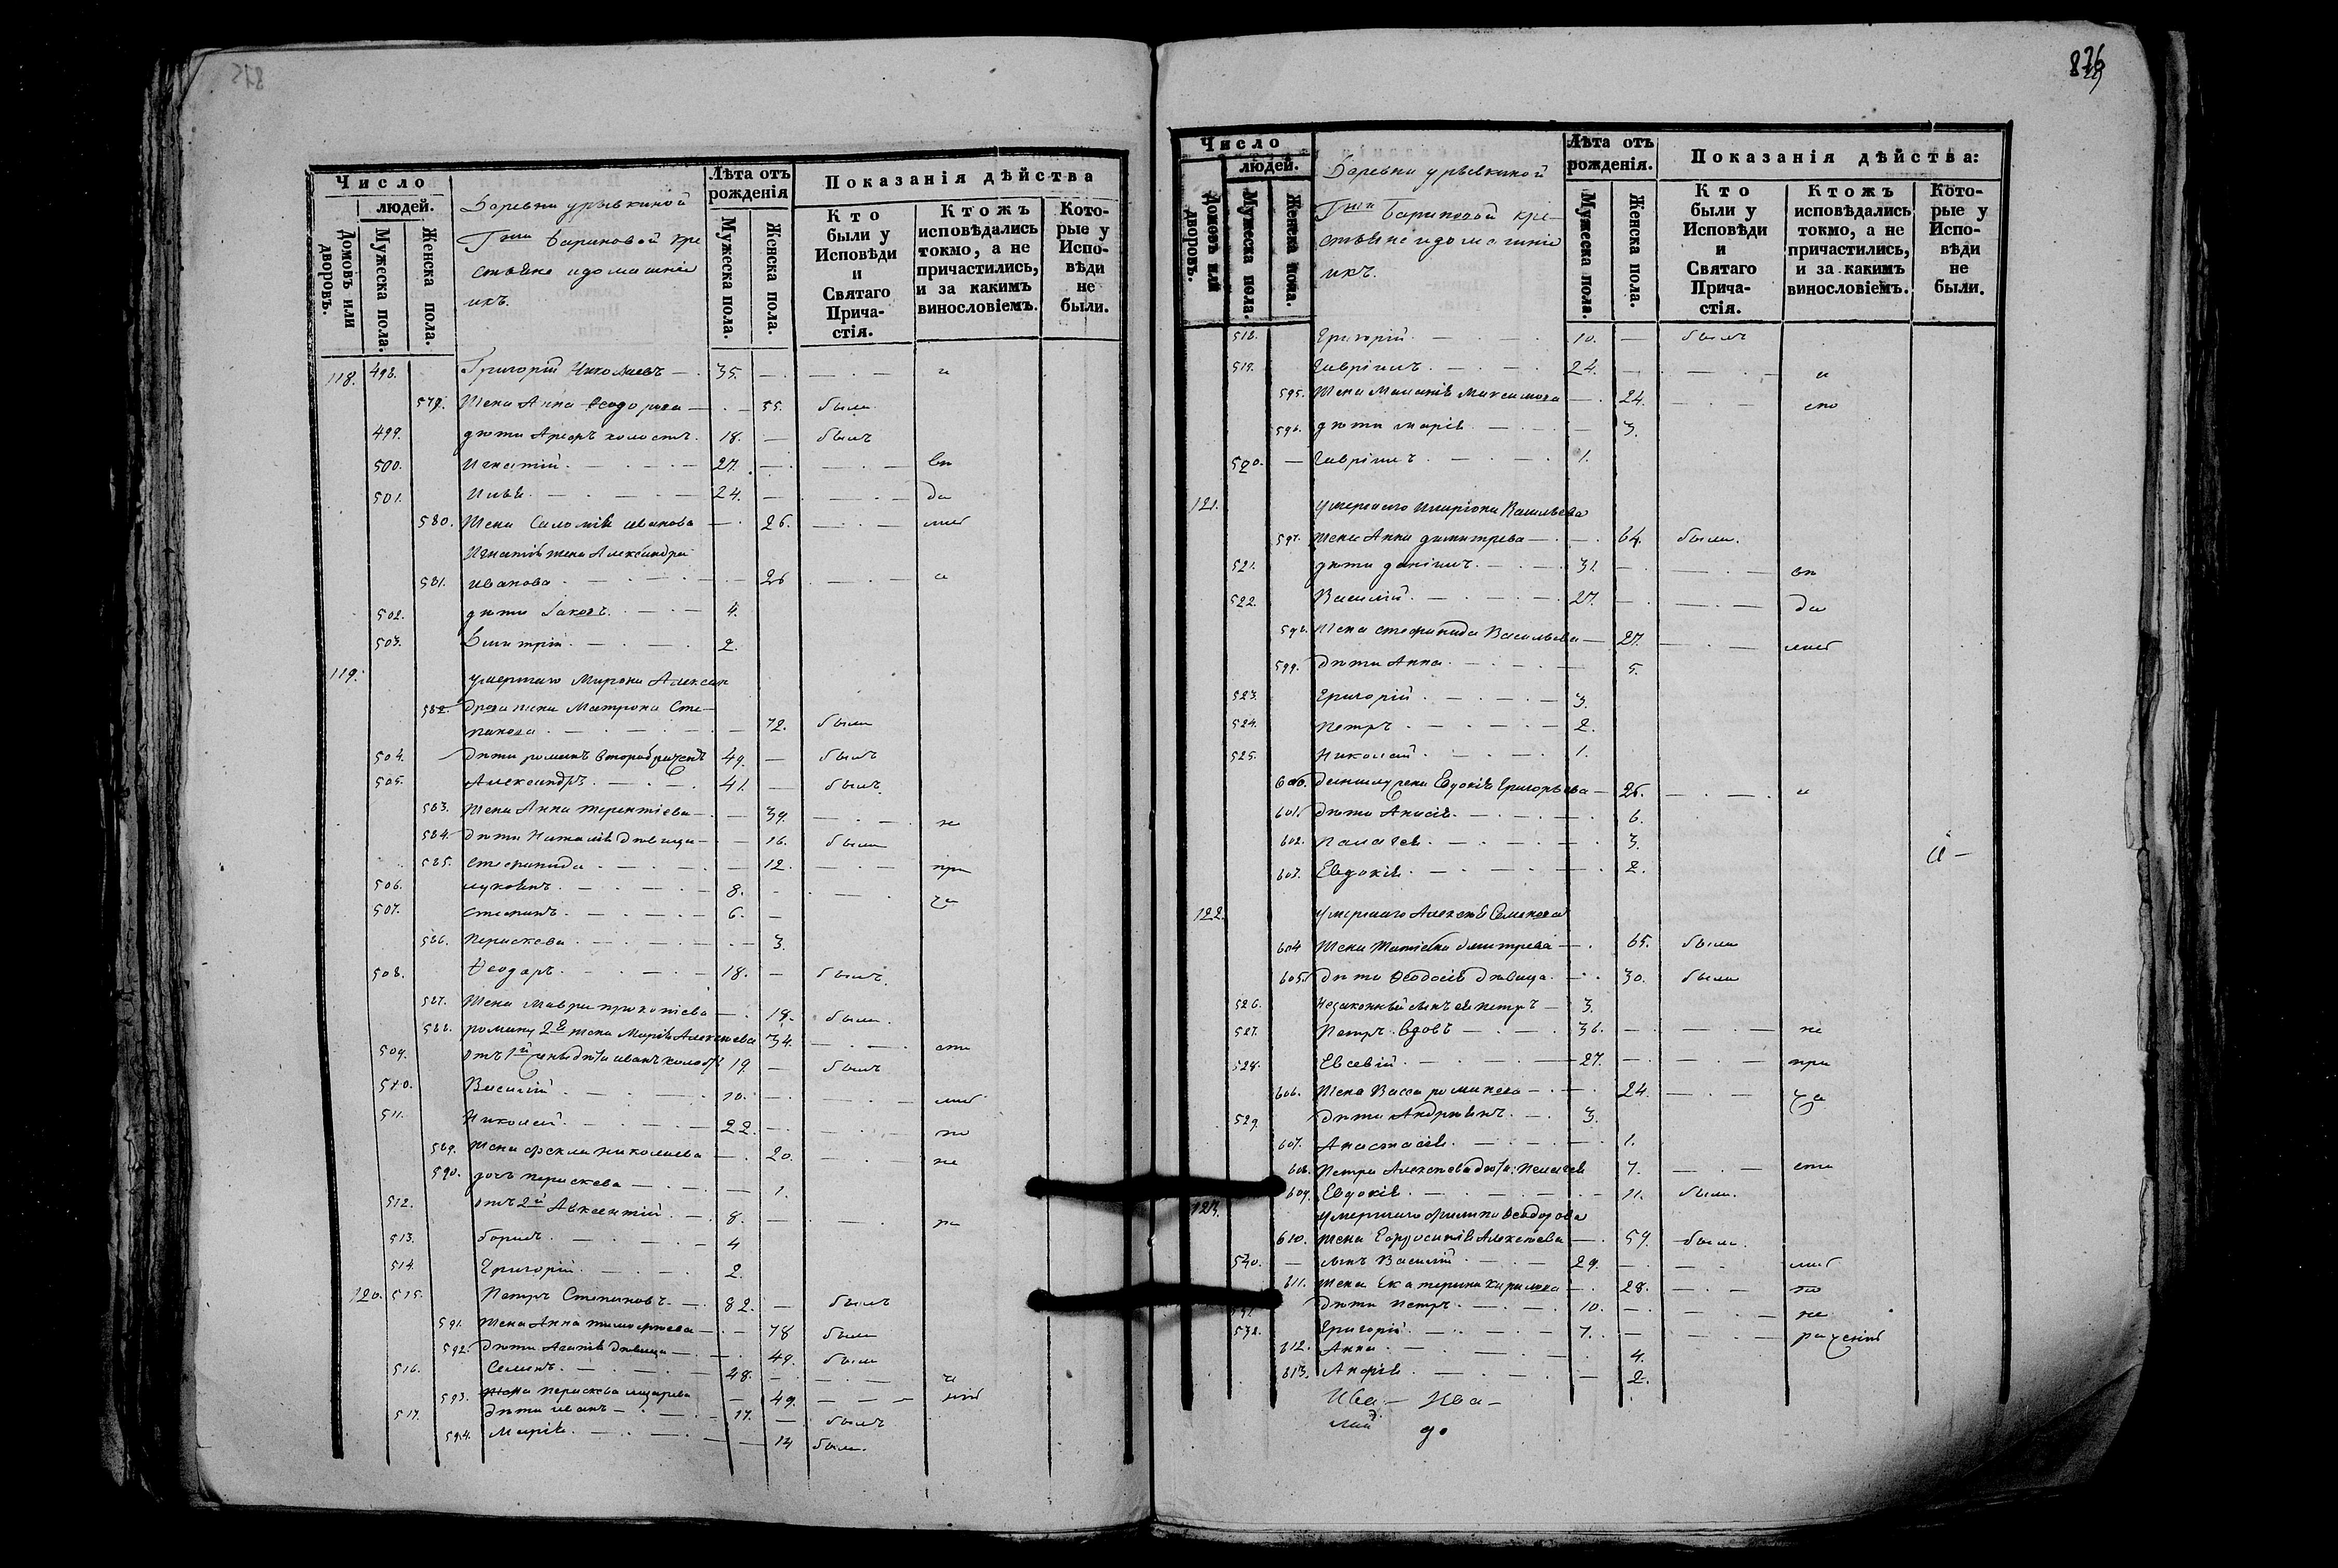 875
Число
людей.
Домовъ или дворовъ.
Мужеска пола.
Женска пола.
Деревни урывкиной
Гжи Бариновой кре
стьяне и домашніе
ихъ.
Лѣта отъ рожденія
Мужеска пола.
Женска пола.
Показанія дѣйства
Кто были у Исповѣди и Святаго Прича-стія.
Ктожъ исповѣдались токмо, а не причастились, и за какимъ винословіемъ.
Кото-рые у Испо-вѣди не были.
118. 498. Григорій Николаевъ 35. — и
579. Жена Анна Ѳеодорова — 55. была
499. дѣти холостъ. 18. — былъ
500. Игнатій 27. — вп
501. Илья 24. — да
580. Жена Саломія иванова — 26. либ
Игнатія жена Александра
581. иванова 26
502. дѣти Іаковъ 4.
503. Димитрій 2.
119. умершаго Мирона Алексан
582. дрова жена Матрона Сте-
панова 72. была
504. дѣти романъ второбраченъ 49. — былъ
505. Александръ 41. — былъ
583. Жена Анна терентіева — 39. не
584. дѣти Наталія дѣвица — 16. была
585. Степанида 12. при
506. лукіянъ 8. ча
507. Стефанъ 6. —
586. Параскева 3.
508. Ѳеодоръ 18. — былъ
587. Жена Мавра прокопіева 18. была
588. роману 2я жена Марія Алексѣева 34. сти
509. отъ 1й жены дѣти иванъ холостъ 19. — былъ
510. Василій 10. —
511. Николай 22. — по
589. Жена Ѳекла николаева 20. не
590. дочь параскева 1.
512. отъ 2й Авксентій 8. — ра
513. борисъ 4
514. Григорій 2.
120. 515. Петръ Степановъ 82. — былъ
591. Жена Анна тимоѳеева — 78 была
592. дѣти Агапія дѣвица 49. была
516. Семенъ 48. —
593. Жена параскева лазарева — 49.
517. дѣти иванъ 17. — былъ
594. Марія 14 была
876
Число
людей.
Домовъ или дворовъ.
Мужеска пола.
Женска пола.
Деревни урывкиной
Гжи Бариновой кре-
стьяне и домашніе
ихъ.
Лѣта отъ рожденія.
Мужеска пола.
Женска пола.
Показанія дѣйства:
Кто были у Исповѣди и Святаго Прича-стія.
Ктожъ исповѣдались токмо, а не причастились, и за какимъ винословіемъ.
Кото-рые у Испо-вѣди не были.
518. Григорій 10. — былъ
519. Гавріилъ 24. — и
595. Жена Маланія Максимова 24. спо
596. дѣти марія 3.
520. — Гавріилъ 1.
121. умершаго илларіона Васильева
597. жена Анна димитрева 64. была.
521. дѣти даніилъ 31. — вп
522. Василій 27. — да
598. Жена степанида Васильева — 27. либ
599. дѣти Анна 5.
523. Григорій 3.
524. Петръ 2.
525. Николай 1.
600. даніилу жена Евдокія Григорьева — 26. и
601. дѣти Анисія 6.
602. Палагея 3.
603. Евдокія 2.
122. умершаго Алексѣя Семенова
604 Жена Татіана дмитрева 65. была
605. дѣти Ѳеодосія дѣвица 30. была
526. незаконный сынъ ея петръ — 3.
527. Петръ вдовъ 36. — не
528. Евсевій 27. — при
606. Жена Васса романова 24. ча
529. дѣти Андріянъ 3.
607. Анастасія 1.
608. Петра Алексѣева дѣти: Пелагея 7. сти
609. Евдокія 11. была.
123. умершаго филипа Ѳеодорова
610. жена Евфросинія Алексѣева 59. была
530. — сынъ Василій 29. — либ
611. Жена Екатерина Кирилова 28. по
531. дѣти Петръ 10. — не
532. Григорій 7. — раченію
612. Анна 4.
613. 2.
Ива — Ива —
до